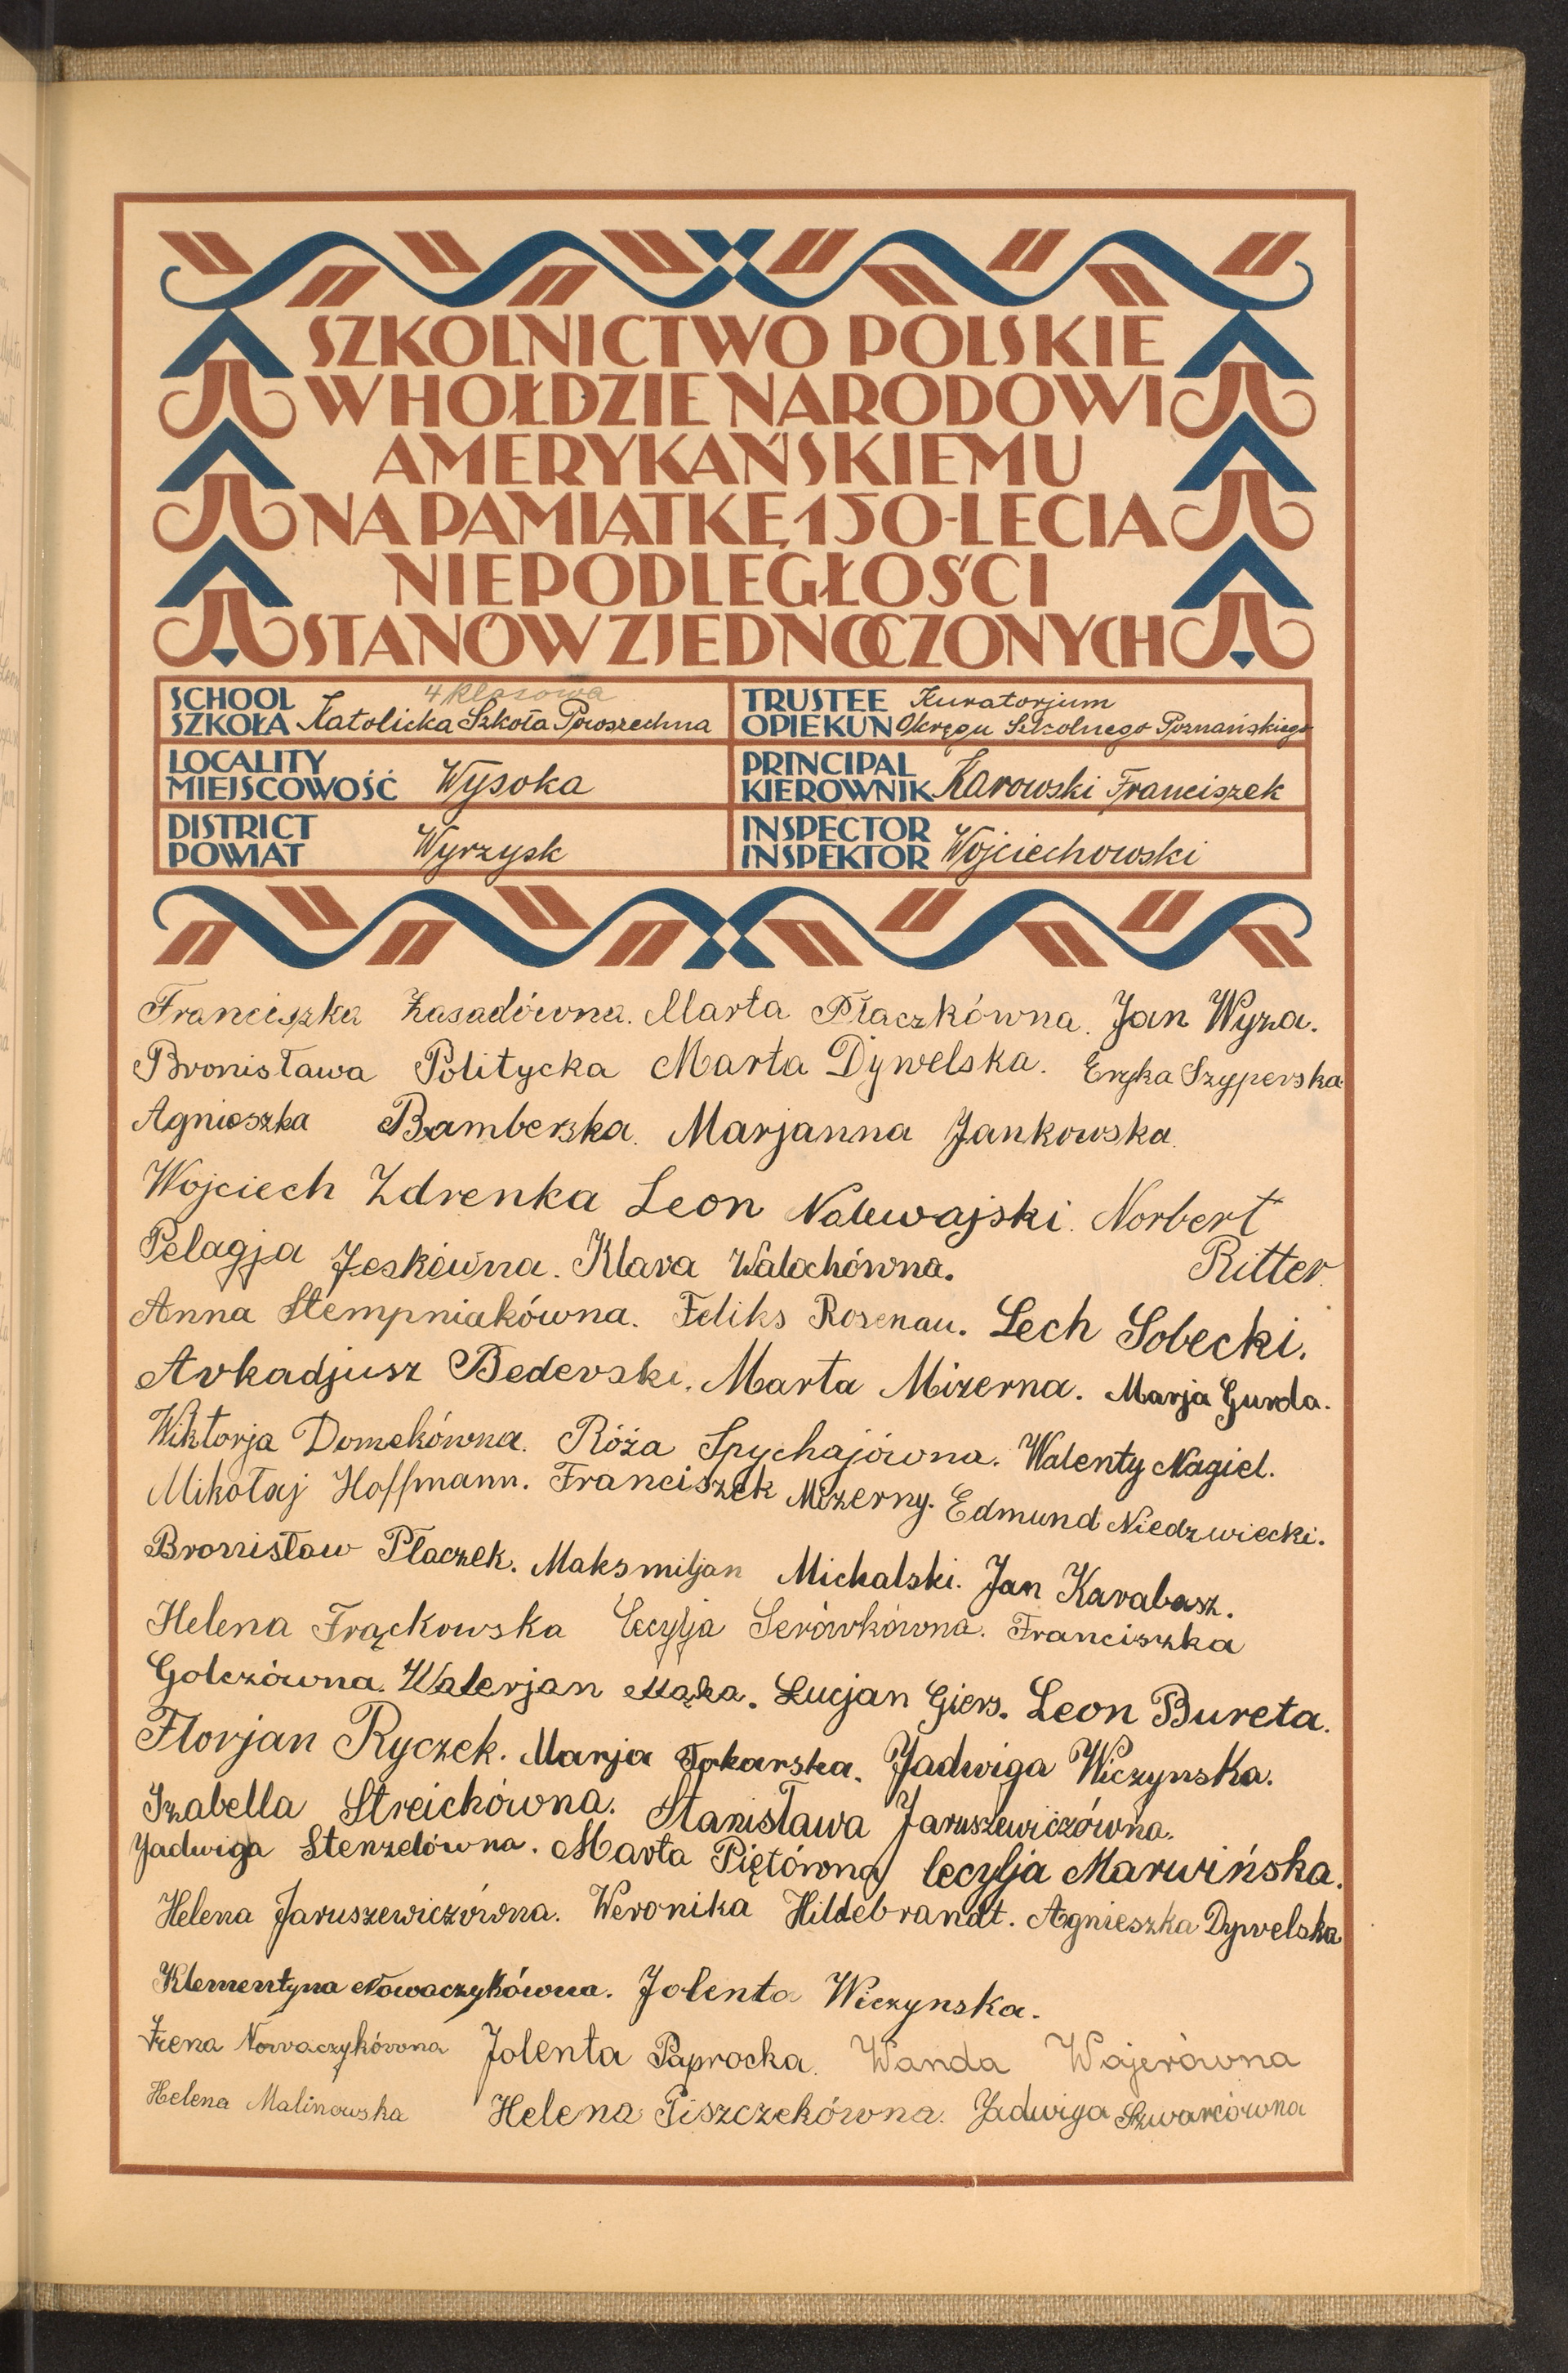 SZKOLNICTWO POLSKIE
W HOŁDZIE NARODOWI
AMERYKAŃSKIEMU
NA PAMIĄTKĘ 150-LECIA
NIEPODLEGŁOŚCI
STANÓW ZJEDNOCZONYCH
SCHOOL 4 klasowa
SZKOŁA Katolicka Szkoła Powszechna
TRUSTEE Kuratorjum
OPIEKUN Okręgu Szkolnego Poznańskiego
LOCALITY
MIEJSCOWOŚĆ Wysoka
PRINCIPAL
KIEROWNIK Karowski Franciszek
DISTRICT
POWIAT Wyrzysk
INSPECTOR
INSPEKTOR Wojciechowski
Franciszka Zasadówna. Marta Płaczkówna. Jan Wyza.
Bronisława Politycka Marta Dywelska. Eryka Szyperska
Agnieszka Bamberska. Marjanna Jankowska.
Wojciech Zdrenka Leon Nalewajski. Norbert
Pelagja Jeskówna. Klara Walochówna. Ritter.
Anna Stempniakówna. Feliks Rosenau. Lech Sobecki.
Arkadjusz Bederski. Marta Mizerna. Marja Gurda.
Wiktorja Domekówna. Róża Spychajówna. Walenty Nagiel.
Mikołaj Hoffmann. Franciszek Mizerny. Edmund Niedzwiecki.
Bronisław Płaczek. Maksmiljan Michalski. Jan Karabasz.
Helena Frąckowska Cecylja Serówkówna. Franciszka
Golczówna. Walerjan Mąka. Lucjan Giers. Leon Bureta.
Florjan Ryczek. Marja Tokarska. Jadwiga Wiczynska.
Izabella Streichówna. Stanisława Jaruszewiczówna.
Jadwiga Stenzelówna. Marta Piętówna Cecylja Marwińska.
Helena Jaruszewiczówna. Weronika Hildebrandt. Agnieszka Dywelska
Klementyna Nowaczykówna. Jolenta Wiczynska.
Irena Nowaczykówna Jolenta Paprocka. Wanda Wajerówna
Helena Malinowska Helena Piszczekówna. Jadwiga Szwarcówna